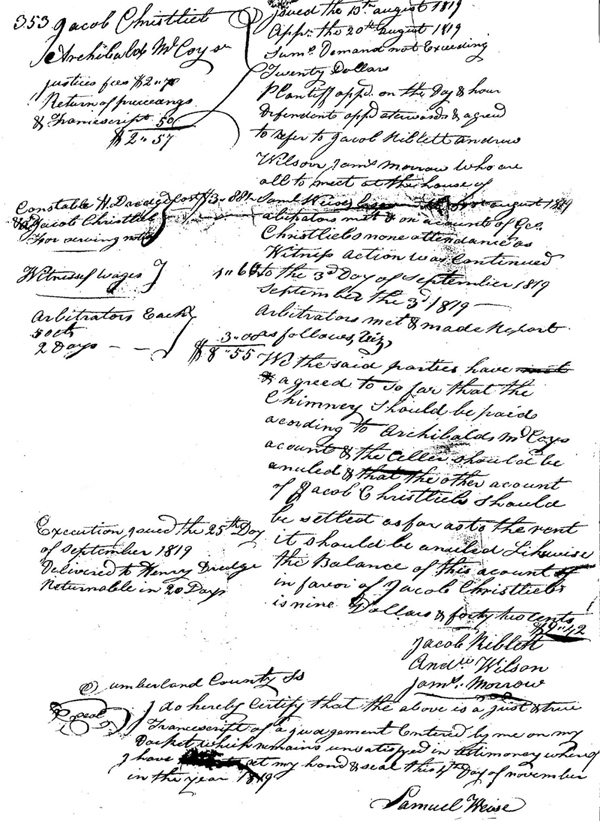 353 Jacob Christlieb
Archibald McCoy Sr
Justices fees $2"
Return of proceeings
& Transcript 50
$2"57
Issued the 13th august 1819
App. the 20th august 1819
Sum. Demand not Exceeding
Twenty Dollars
Plantiff appd. on the Day & hour
Dependents appd aterwards & agreed
to refer to Jacob Niblett andrew
Wilson Jams Morrow who are
all to meet at the house of
Saml Weise august 1819
Constable H. Dredge Cost
& Jacob Christlieb
For serving
abipators met & on acounts of Geo.
Christliebs none attendance as
Witness action was continued
Witnesses wages 1"68
to the 3d Day of September 1819
September the 3d 1819 —
arbitrators Each
50 cts
2 Days — —
3"00
$8"55
Arbitrators met & made Report
as follows, Viz,
We the said parties have
& agreed to so far that the
Chimney Should be paid
acording to Archibalds McCoys
acount & the Celler should be
anuled & the other acount
of Jacob Christliebs Should
be settled as far as to the rent
it should be anuled Likewise
the Balance of this acount
in favor of Jacob Christliebs
is nine Dollars & forty two cents
$9"42
Execution issued the 25th Day
of September 1819
Delivered to Henry Dredge
Returnable in 20 Days
Jacob Niblett
Andw Wilson
Jams. Morrow
Cumberland County Ss
I do hereby Certify that the above is a Just & true
Seal
Trancscript of a judgement Entered by me on my
Docket which remains unsatisfied in testimoney whereof
I have set my hand & seal this 4th Day of november
in the year 1819
Samuel Weise